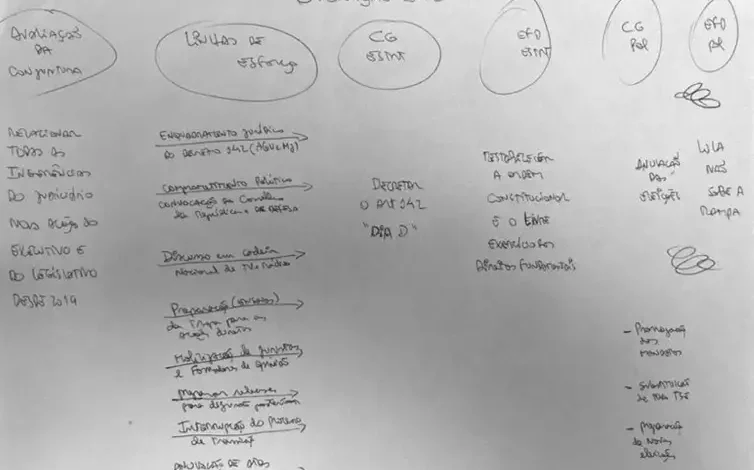 AVALIAÇÃO
DA
CONJUNTURA
LINHAS DE
ESFORÇO
CG
ESTRT
EFD
ESTRT
CG
POL
EFD
POL
RELACIONAR
TODAS AS
INTERFERÊNCIAS
DO JUDICIÁRIO
NAS AÇÕES DO
EXECUTIVO E
DO LEGISLATIVO
DESDE 2019
ENQUADRAMENTO JURÍDICO
DO DECRETO 142 (AGU e MJ)
COMPROMETIMENTO POLÍTICO
CONVOCAÇÃO DO CONSELHO
DA REPÚBLICA e DE DEFESA
Discurso em cadeia
Nacional de TV e Rádio
Preparação
da Tropa para as
ações diretas
Mobilização de juristas
e Formadores de opinião
Preparar
para
Interrupção do Processo
de Transição
ANULAÇÃO DE ATOS
DECRETAR
O ART 142
"DIA D"
RESTABELECER
A ORDEM
CONSTITUCIONAL
E O LIVRE
EXERCÍCIO DOS
DIREITOS FUNDAMENTAIS
ANULAÇÃO
DAS
ELEIÇÕES
LULA
NÃO
SOBE A
RAMPA
- Prorrogação
dos
mandatos
- SUBSTITUIÇÃO
de todo TSE
- preparação
de Novas
eleições